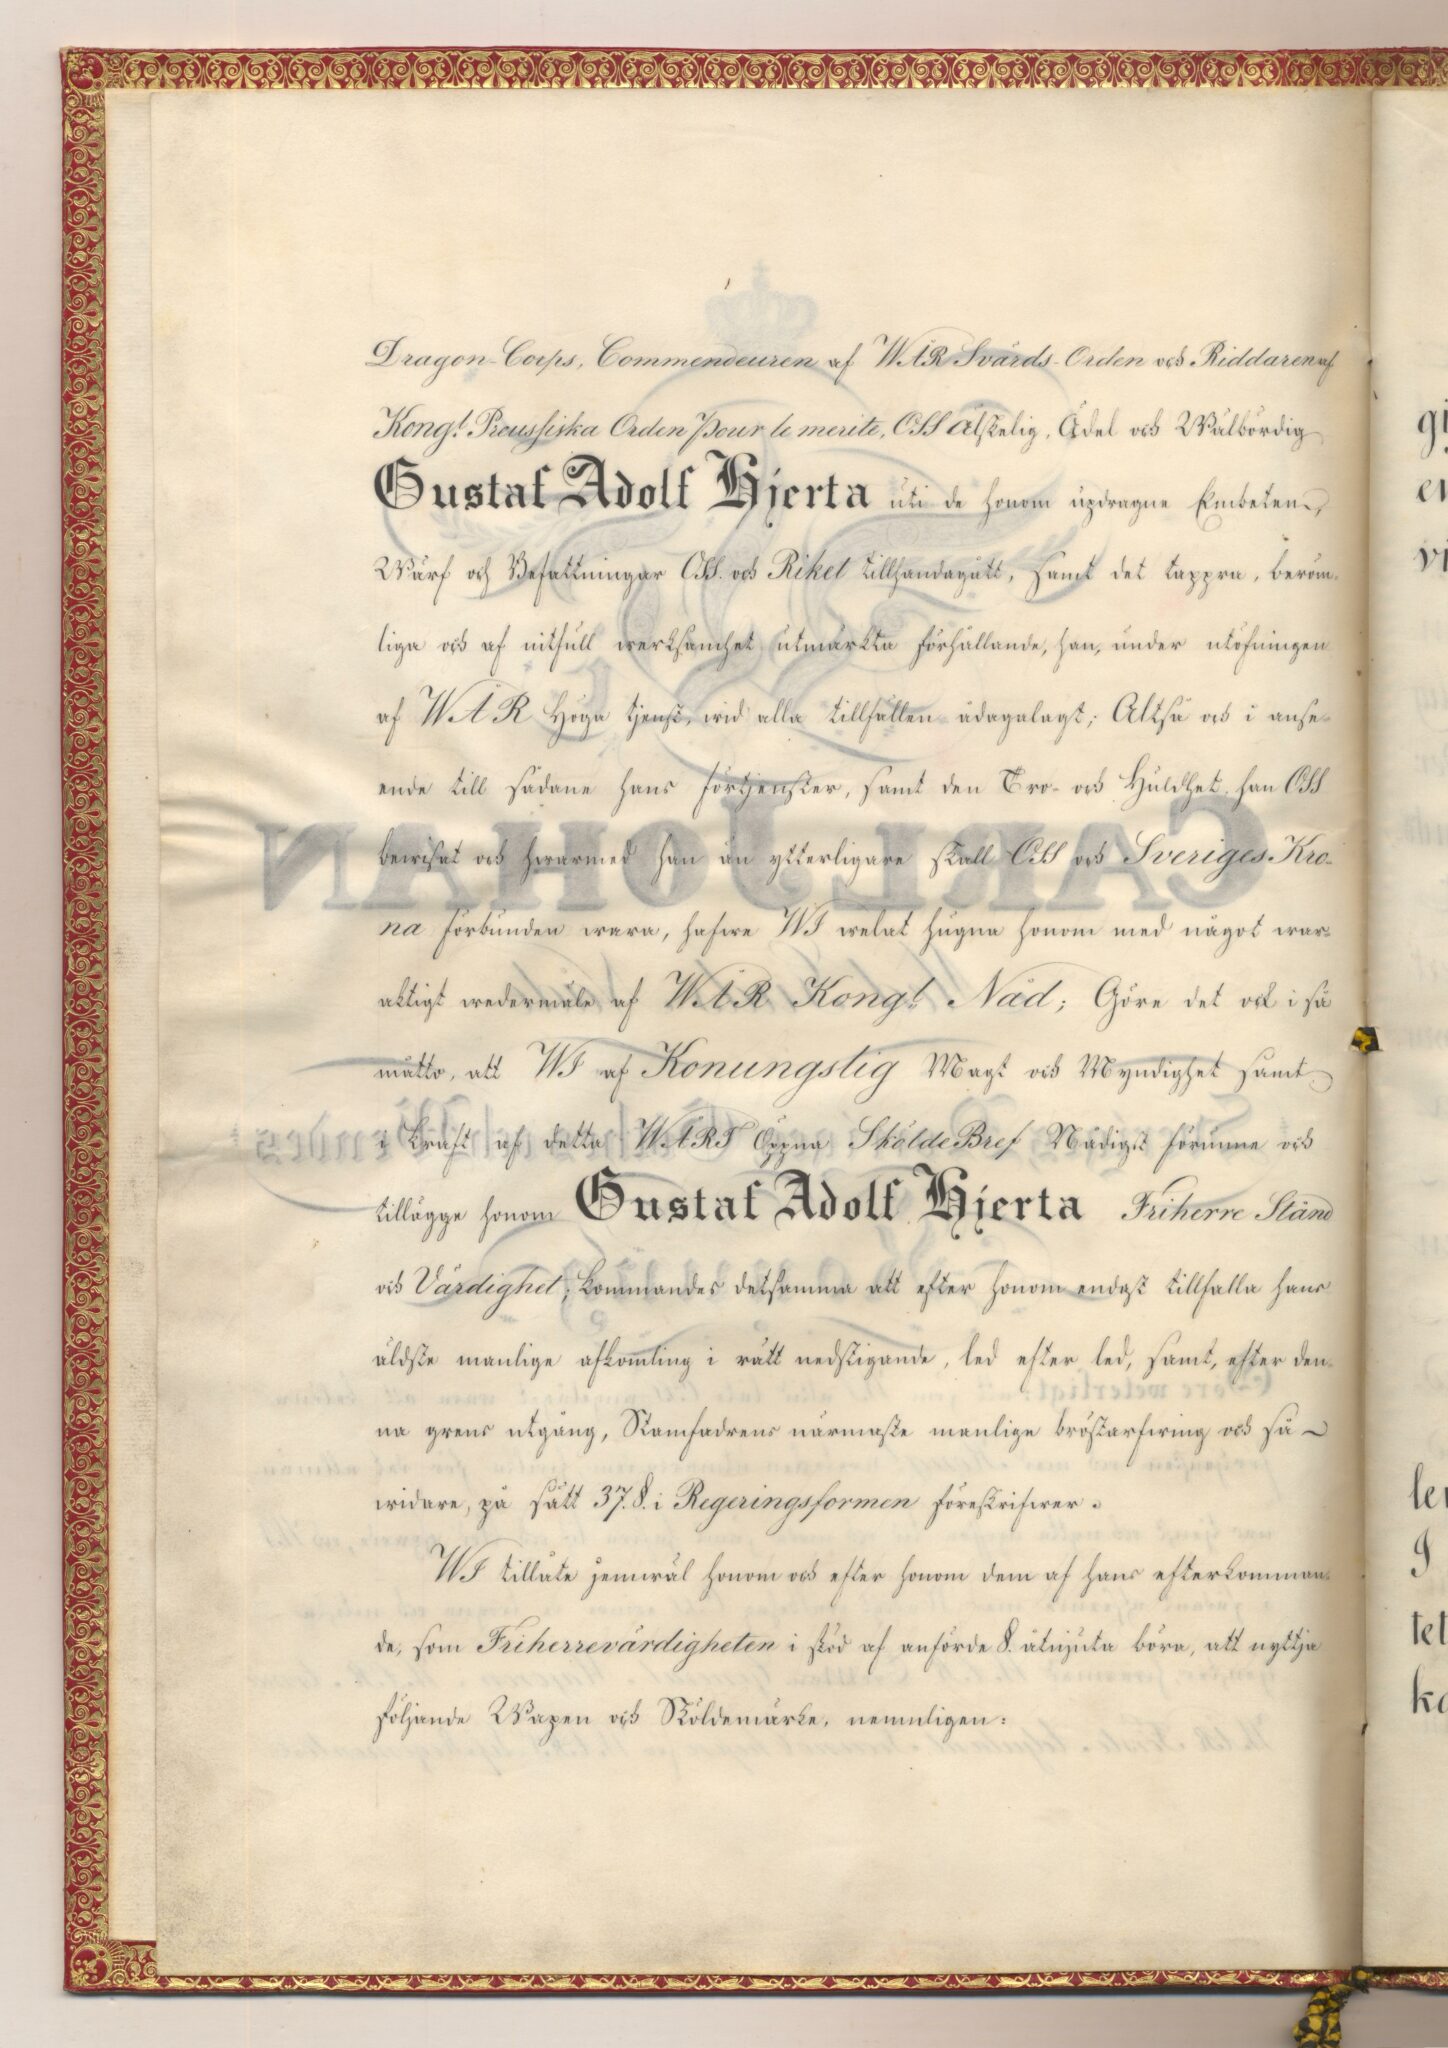 Dragon-Corps, Commendeuren af WÅR Svärds-Orden och Riddaren af
Kongl. Preussiska Orden pour le merite, OSS älskelig, Ädel och Wälbördig
Gustaf Adolf Hjerta uti de honom updragne Embeten,
Wärf och Befattningar OSS och Riket tillhandagått, samt det tappra, beröm-
liga och af nitfull werksamhet utmärkta förhållande, han, under utöfningen
af WÅR Höga tjenst, wid alla tillfällen ådagalagt; Altså och i anse-
ende till sådane hans förtjenster, samt den Tro- och Huldhet han OSS
bewisat och hwarmed han än ytterligare skall OSS och Sveriges Kro-
na förbunden wara, hafwe WI welat hugna honom med något war-
aktigt wedermäle af WÅR Kongl. Nåd; Göre det ock i så
måtto, att WI af Konungslig Magt och Myndighet samt
i kraft af detta WÅRT Öppna SköldeBref Nådigst förunne och
tillägge honom Gustaf Adolf Hjerta Friherre Stånd
och Värdighet; kommandes detsamma att efter honom endast tillfalla hans
äldste manlige afkomling i rätt nedstigande, led efter led, samt, efter den-
na grens utgång, Stamfadrens närmaste manlige bröstarfwing och så
widare, på sätt 37. §. i Regeringsformen föreskrifwer.
WI tillåte jemwäl honom och efter honom dem af hans efterkomman-
de, som Friherrevärdigheten i stöd af anförde §. åtnjuta böra, att nyttja
följande Wapen och Sköldemärke, nemnligen:
CARL JOHAN
gi
en
vi